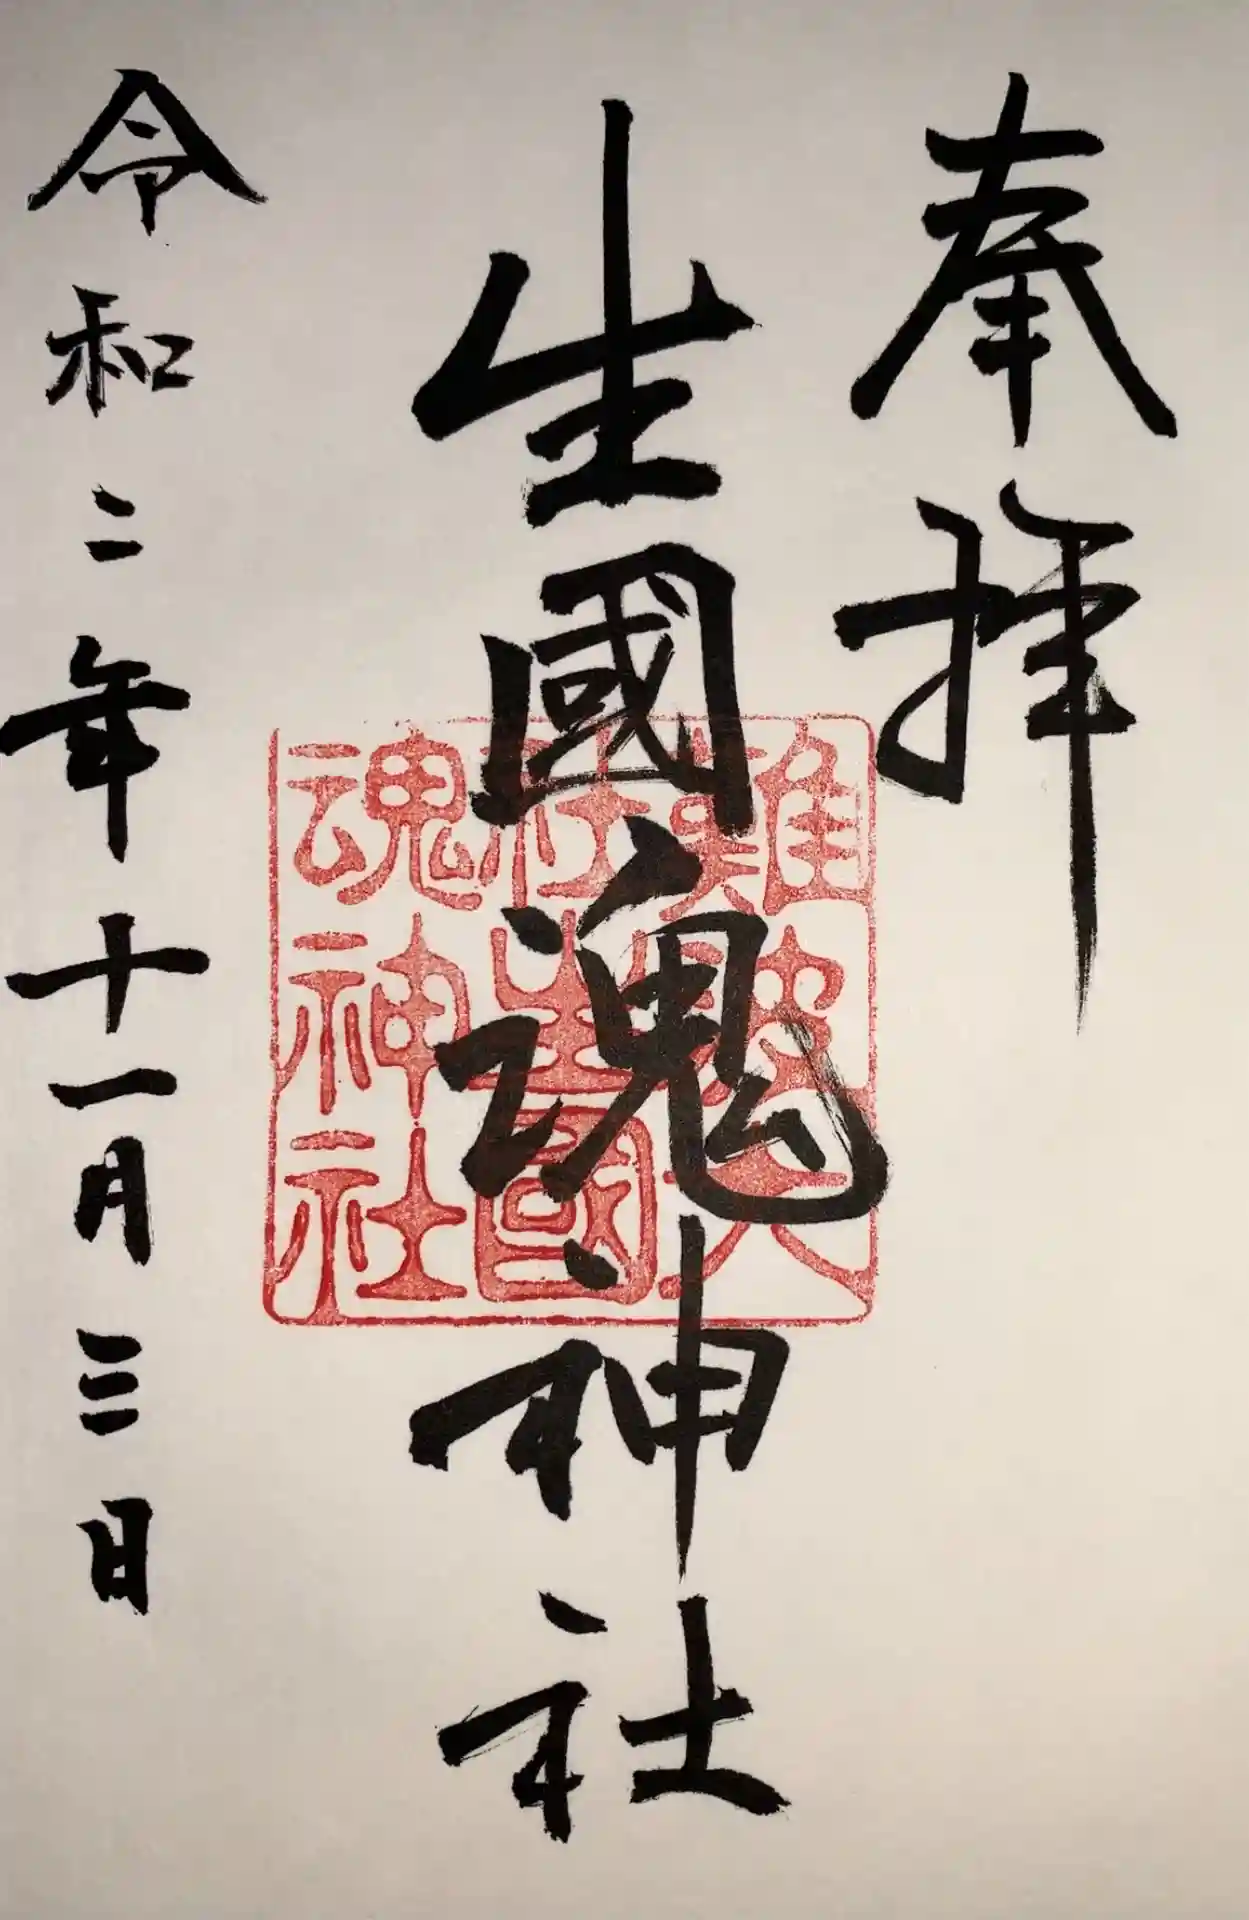 奉拝
生國魂神社
難波大
社生國
魂神社
令和二年十一月三日